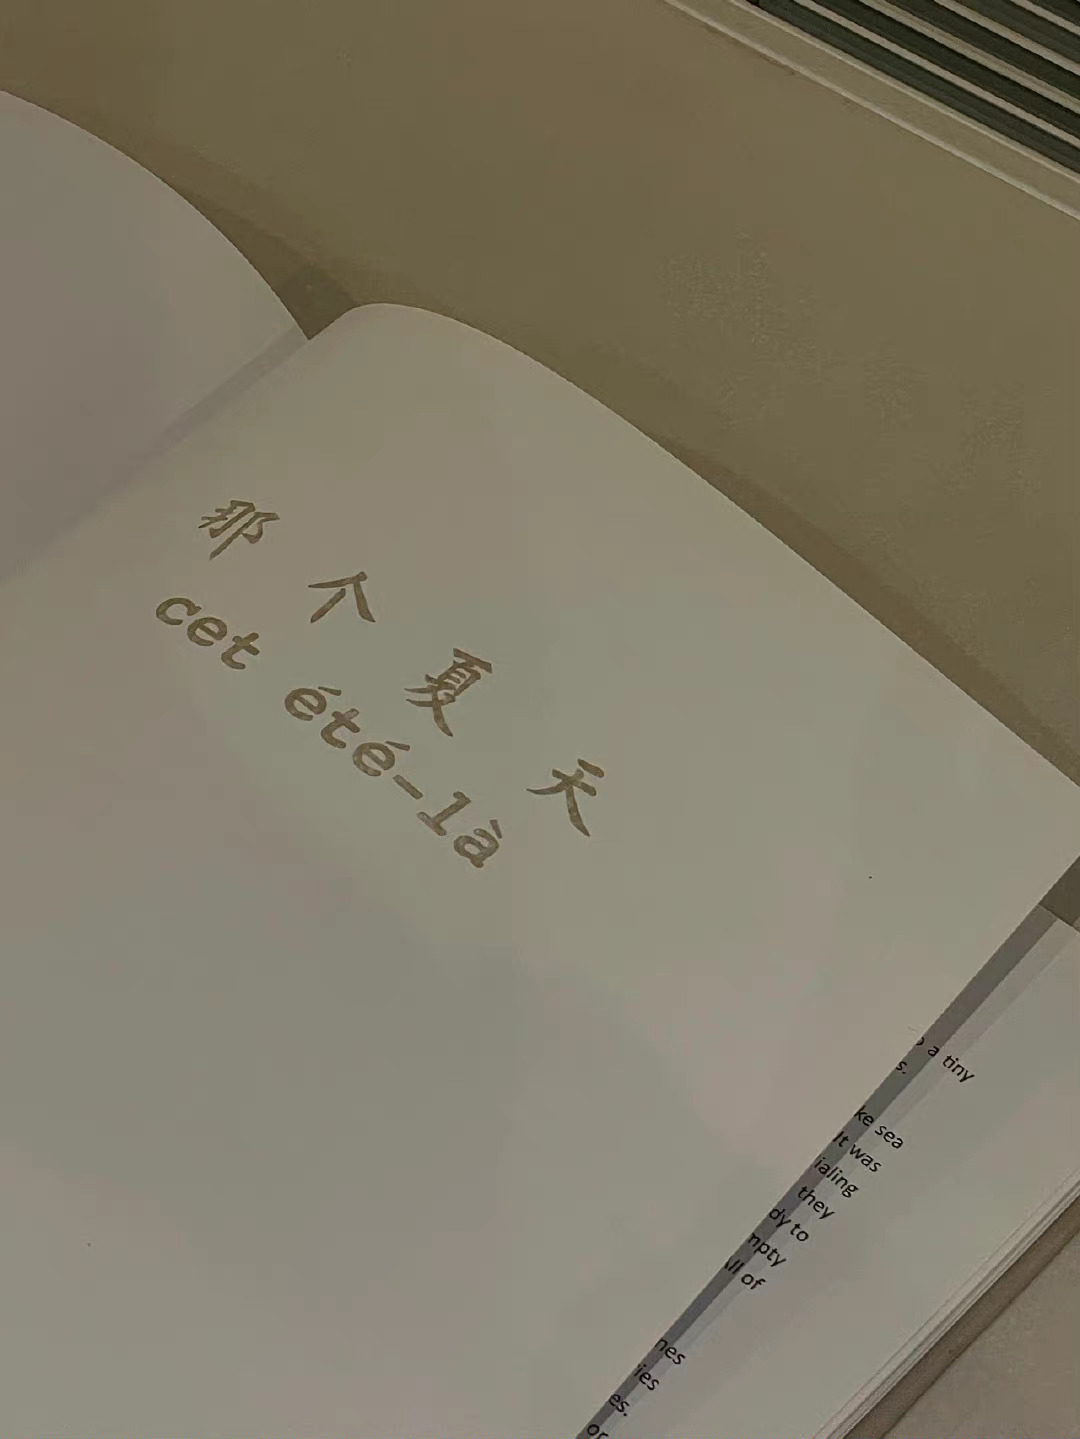 那个夏天
cet été-là
a tiny
s.
ke sea
It was
ialing
they
dy to
npty
ll of
nes
ies
es.
or